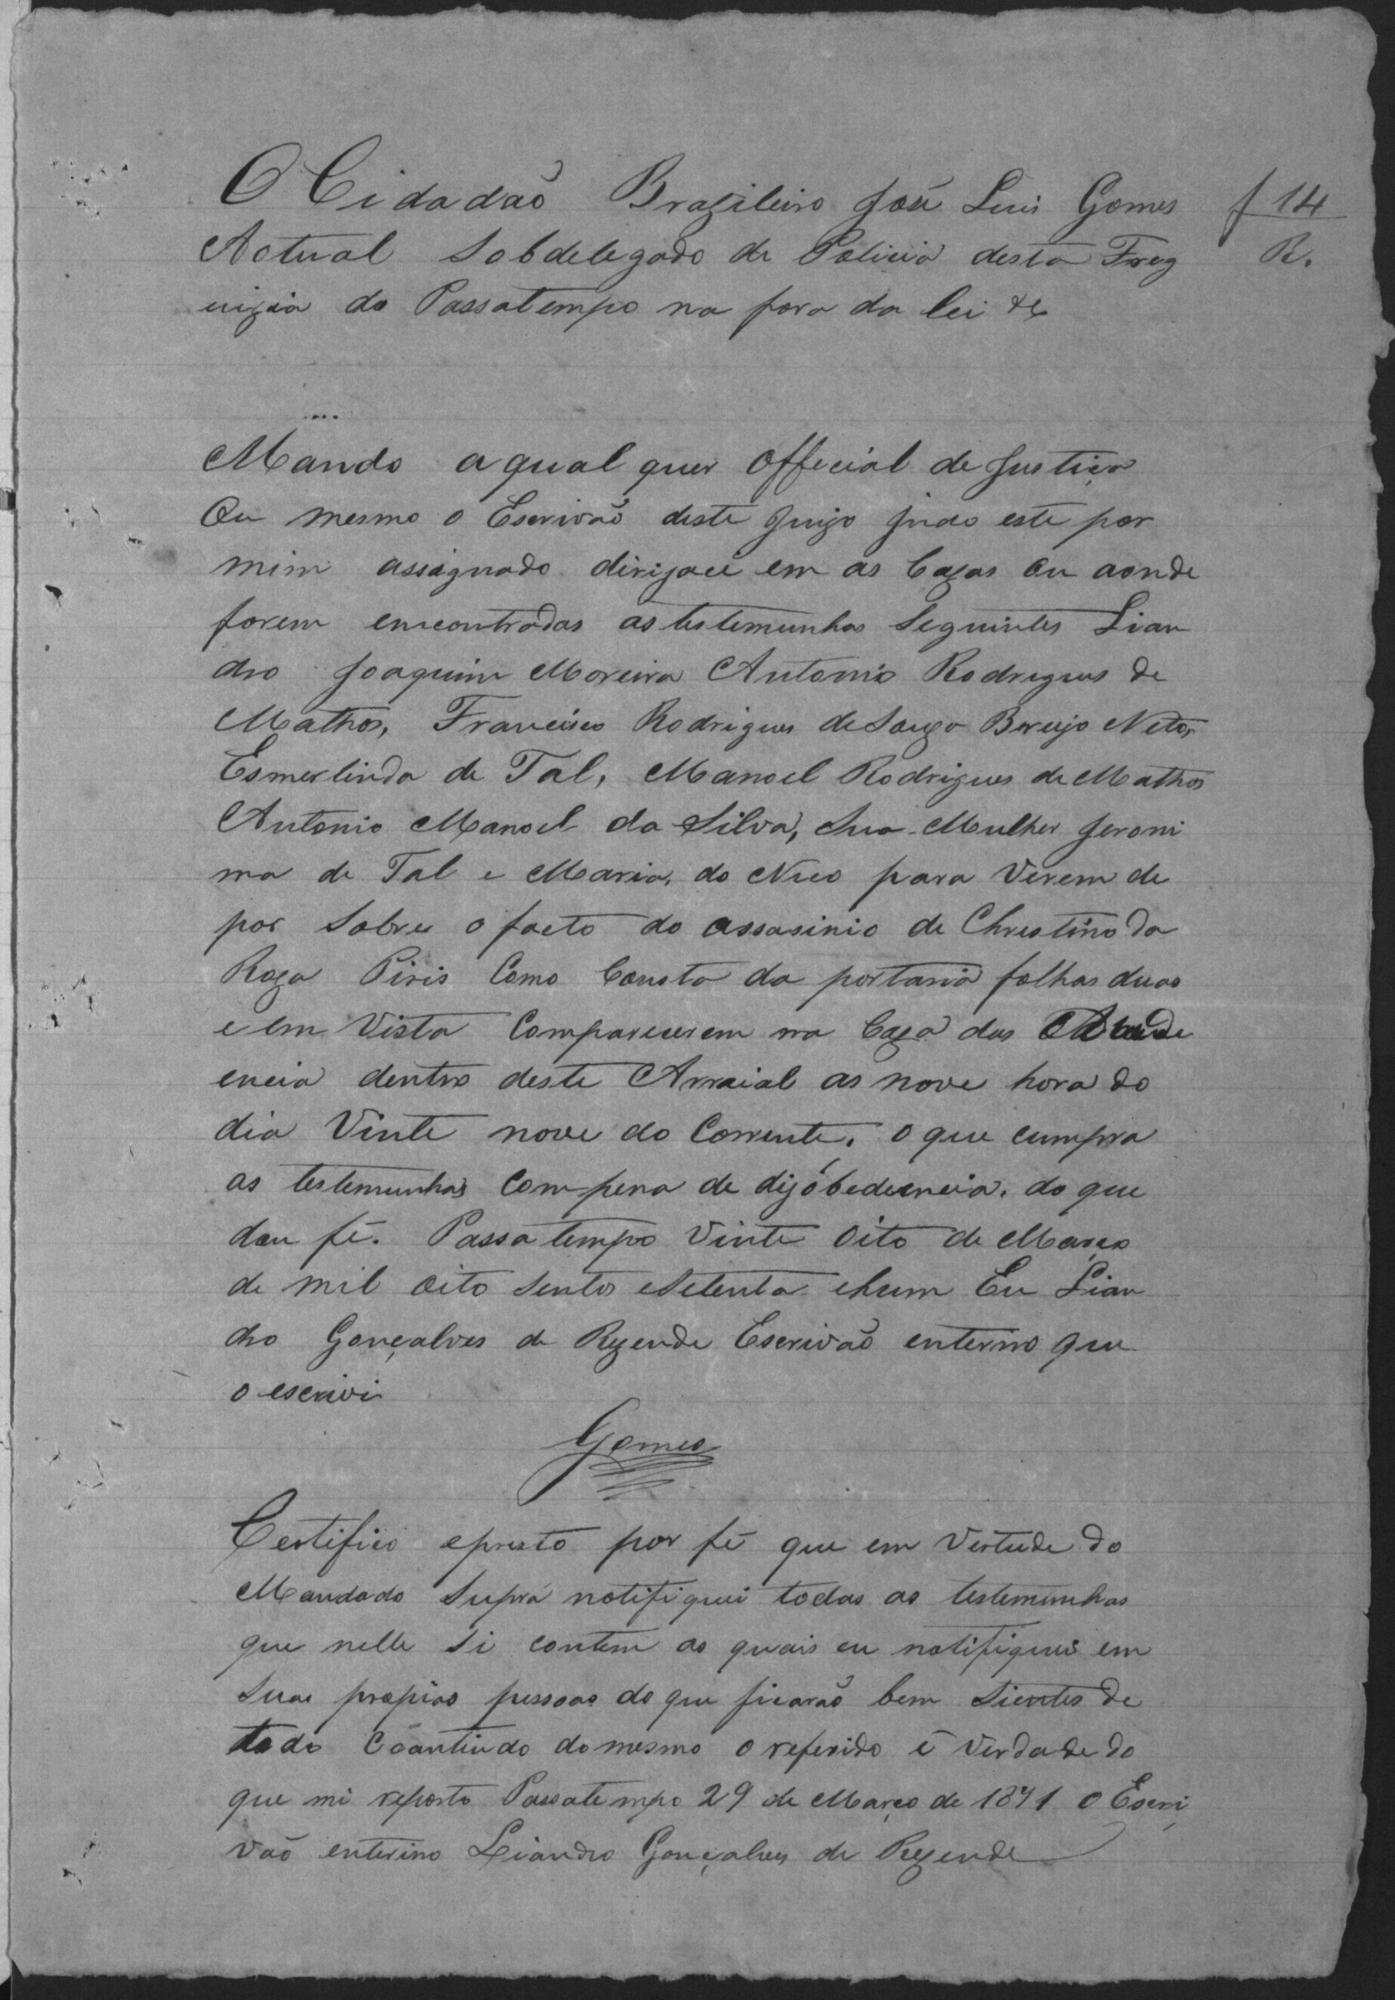 O Cidadaõ Brazileiro José Luis Gomes
f 14
Actual Sobdelegado de Policia desta Freg
R.
uizia do Passatempo na fora da lei &
Mando aqual quer Official de Justiça
Ou mesmo o Escrivaõ deste Juizo sendo este por
mim assignado dirijace em as Cazas ou aonde
forem emcontradas as testemunhas Seguintes Lian
dro Joaquim Moreira Antonio Rodrigues de
Mathos, Francisco Rodrigues de Souza Neto,
Esmerlinda de Tal, Manoel Rodrigues de Mathos
Antonio Manoel da Silva, Sua Mulher Jeroni
ma de Tal e Maria, do Nico para Virem de
por Sobre o facto do assasinio de Christino da
Roza Piris Como Consta da portaria folhas duas
e em Vista Comparecerem na Caza das
encia dentro deste Arraial as nove hora do
dia Vinte nove do Corrente, o que cumpra
as testemunhas Com pena de dizobediencia. do que
dou fé. Passa tempo Vinte Oito de Março
de mil oito Sentos eSetenta ehum Eu Lian
dro Gonçalves de Rezende Escrivaõ enterino que
o escrivi
Gomes
Certifico epresto por fé que em Vertude do
Mandado Supra notifiquei todas as testemunhas
que nelle Si contem as quais eu notifiquei em
Suas propias pessoas do que ficaraõ bem Sientes de
todo Coantiudo do mesmo o referido é Verdade do
que mi reporto Passatempo 29 de Março de 1871 O Escri
vaõ enterino Liandro Gonçalves de Rezende